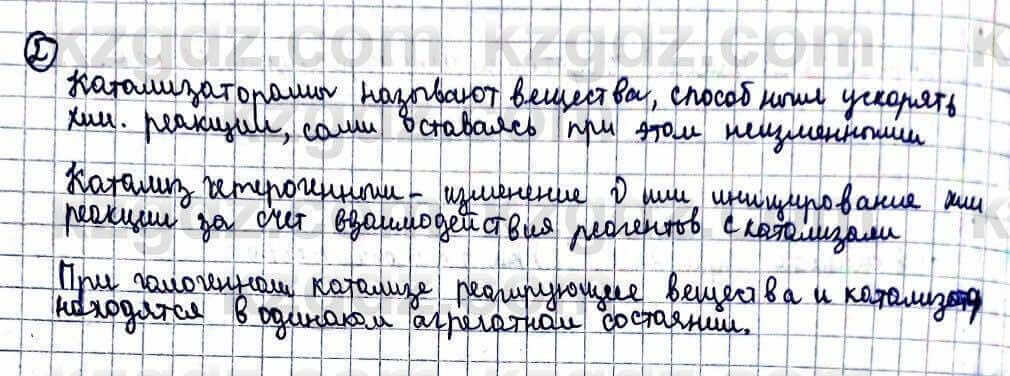 2
Катализаторами называют вещества, способные ускорять
хим. реакции, сами оставаясь при этом неизменными
Катализ гетерогенный – изменение υ или инициирование хим
реакции за счет взаимодействия реагентов с катализами
При гомогенном катализе реагирующие вещества и катализатор
находятся в одинаком агрегатном состоянии.
kzgdz.com kzgdz.com